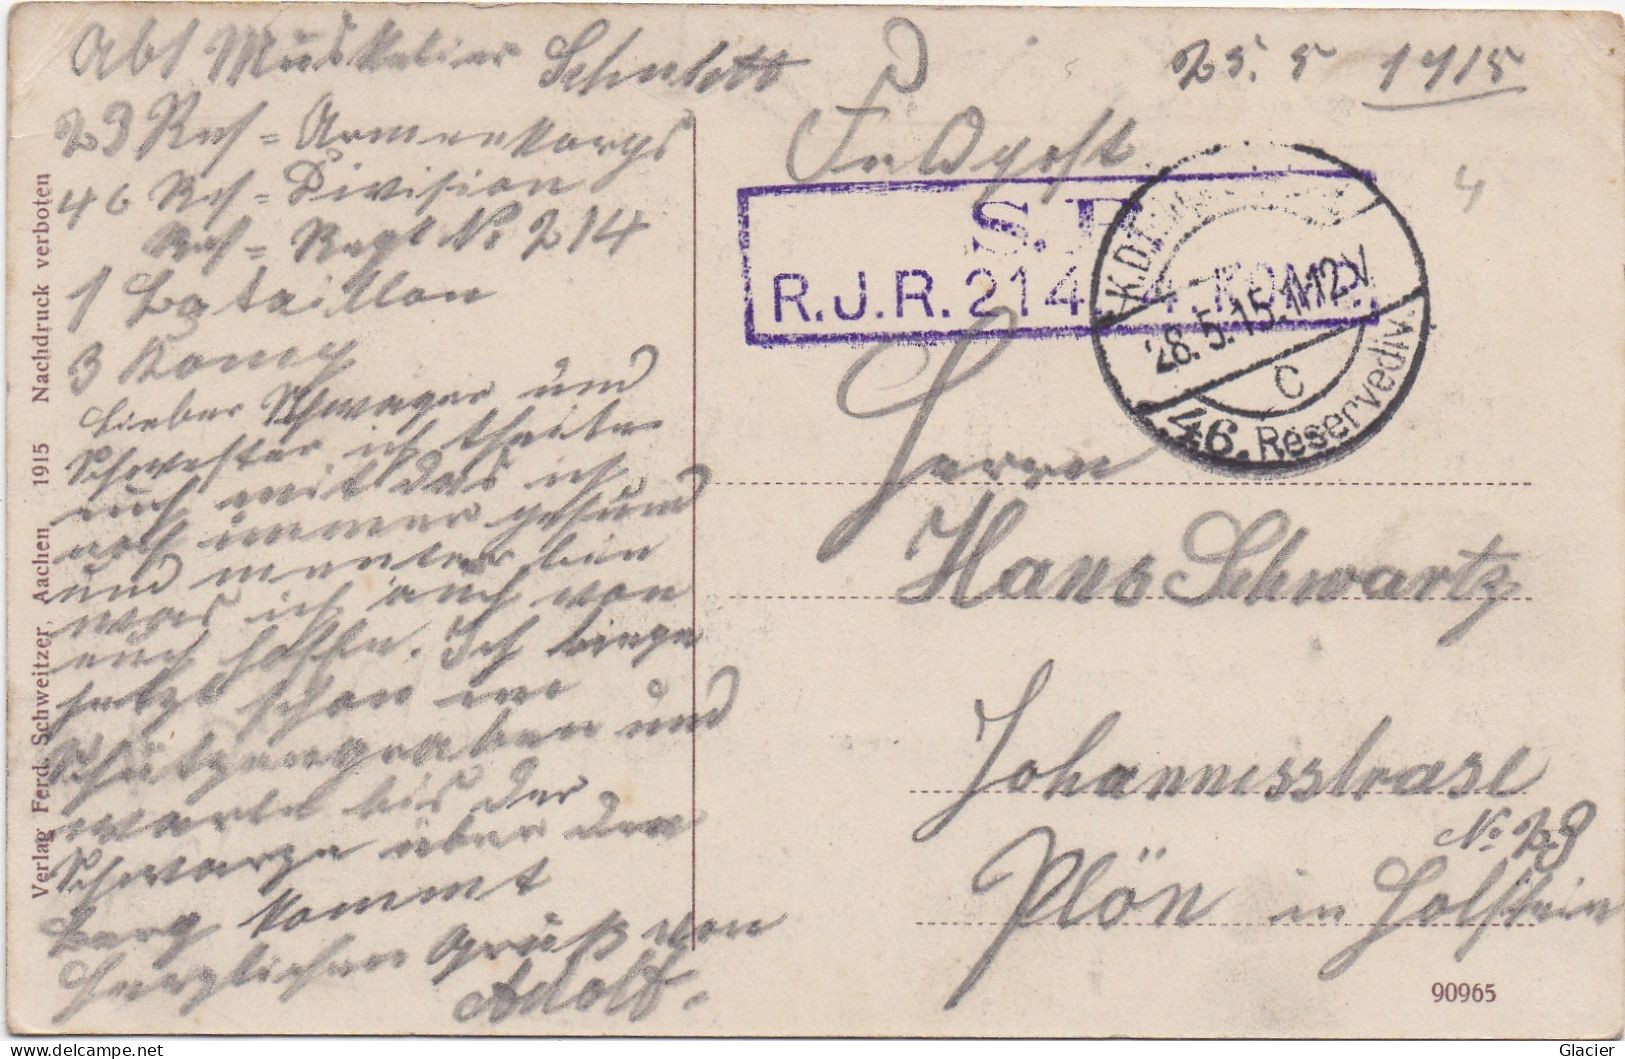 Abs Musketier Schulett
23 Res = Armeekorps
46 Res = Division
Res = Regt No 214
1 Bataillon
3 Komp
Lieber Schwager und
Schwester ich theile
euch mit das ich
noch immer gesund
und munter bin
was ich auch von
euch hoffe. Ich liege
jetzt schon im
Schützengraben und
warte bis der
Schwarze über den
Berg kommt
Herzlichen Gruß von
Adolf.
25. 5 1915
Feldpost
4
S.B.
R.J.R. 214 4. KOMP.
K.D.
28.5.15.11-12V
C
46. Reservediv.
Herrn
Hans Schwartz
Johannesstrase
No 28
Plön in Holstein
90965
Verlag Ferd. Schweitzer, Aachen 1915 Nachdruck verboten
Glacier
delcampe.net